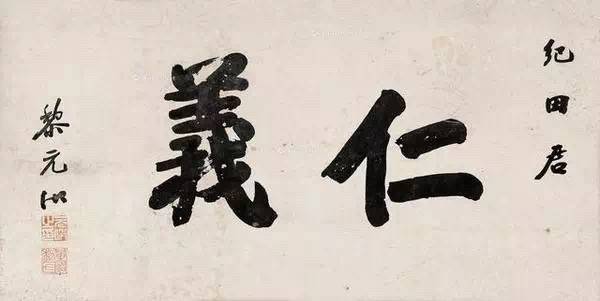 紀田君
仁義
黎元洪